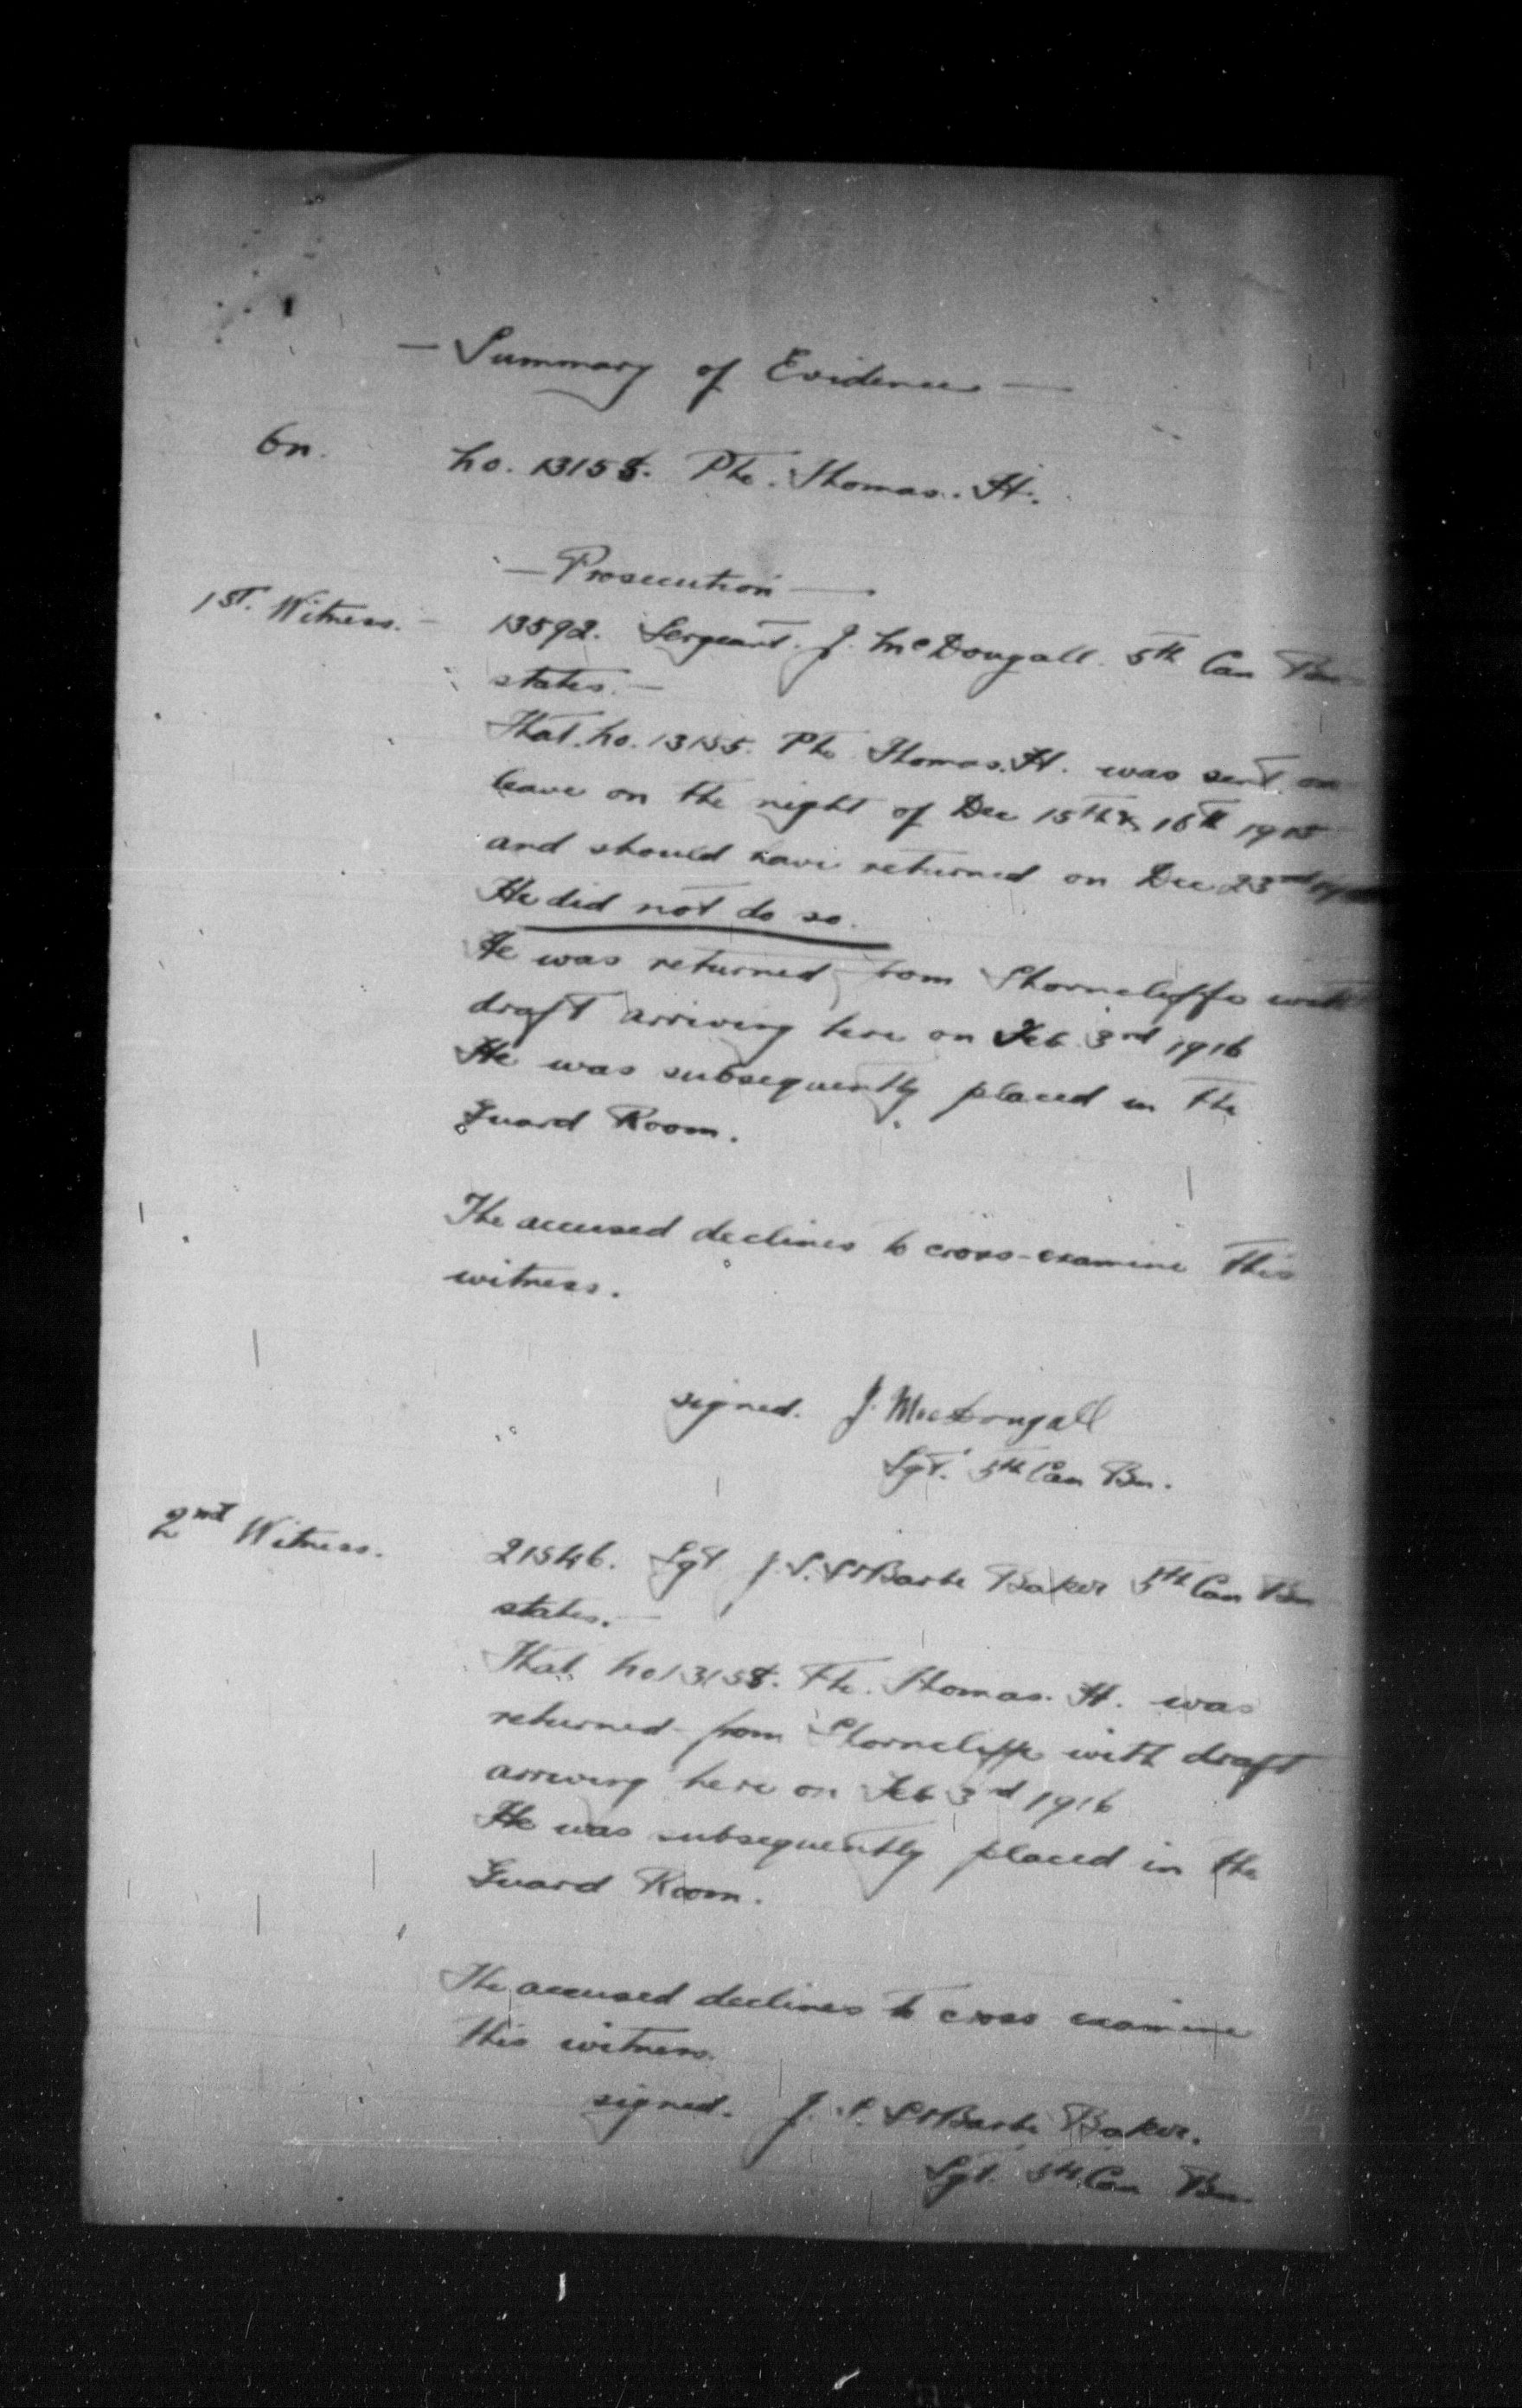 — Summary of Evidence —
On. No. 13155. Pte. Thomas. H.
— Prosecution —
1st. Witness. — 13592. Sergeant. J. McDougall. 5th Can Bn
states. —
That. No. 13155. Pte Thomas. H. was sent on
leave on the night of Dec 15th & 16th 1915
and should have returned on Dec 23rd
He did not do so.
He was returned from Shorncliffe with
draft arriving here on Feb. 3rd 1916
He was subsequently placed in the
Guard Room.
The accused declines to cross-examine this
witness.
signed. J. MacDougall
Sgt. 5th Can Bn.
2nd Witness. 21546. Sgt J. S. St Barbe Baker 5th Can Bn
states. —
That No 13155. Pte. Thomas. H. was
returned from Shorncliffe with draft
arriving here on Feb 3rd 1916
He was subsequently placed in the
Guard Room.
The accused declines to cross examine
this witness.
signed. J. S. St Barbe Baker.
Sgt. 5th Can Bn